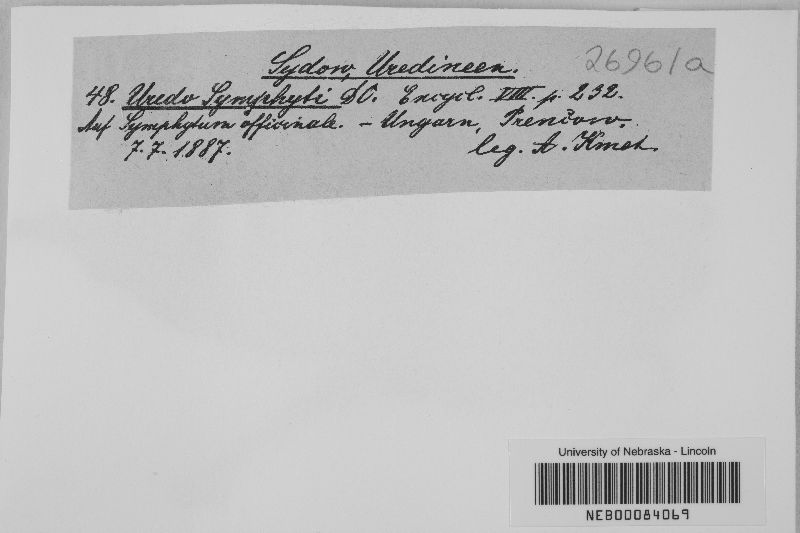 Sydow, Uredineen.
26961a
48. Uredo Symphyti DC. Encycl. VIII. p. 232.
Auf Symphytum officinale. – Ungarn, Trenčow.
7. 7. 1887.
leg. A. Kmet.
University of Nebraska - Lincoln
NEB00084069